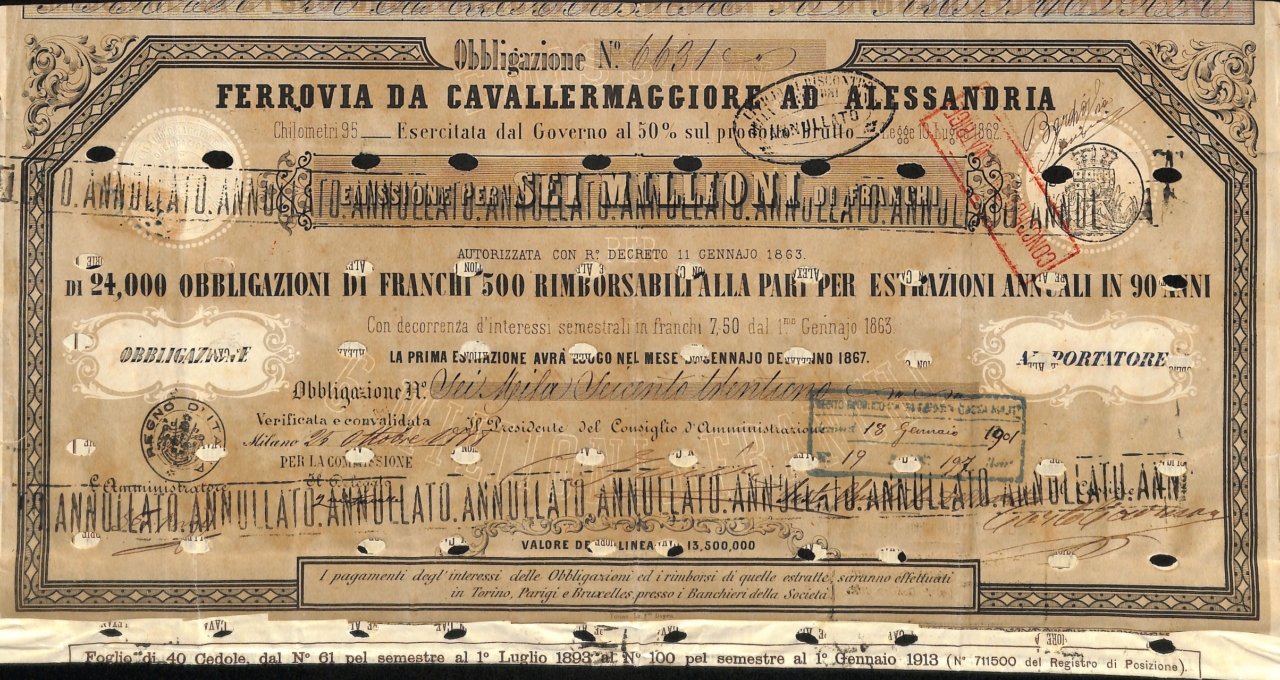 Obbligazione N.º 6631
FERROVIA DA CAVALLERMAGGIORE AD ALESSANDRIA
Chilometri 95 Esercitata dal Governo al 50% sul prodotto brutto Legge 10 Luglio 1862
ANNULLATO
O. ANNULLATO. ANNULLATO. ANNULLATO. ANNULLATO. ANNULLATO. ANNULLATO
EMISSIONE PER SEI MILIONI DI FRANCHI
AUTORIZZATA CON Rº DECRETO 11 GENNAJO 1863.
DI 24,000 OBBLIGAZIONI DI FRANCHI 500 RIMBORSABILI ALLA PARI PER ESTRAZIONI ANNUALI IN 90 ANNI
Con decorrenza d'interessi semestrali in franchi 7,50 dal 1.mo Gennajo 1863.
OBBLIGAZIONE
AL PORTATORE
LA PRIMA ESTRAZIONE AVRÀ LUOGO NEL MESE DI GENNAJO DELL'ANNO 1867.
Obbligazione N.º Sei Mila Seicento trentuno
REGNO D'ITALIA
Verificata e convalidata Il Presidente del Consiglio d'Amministrazione
Milano 26 Ottobre
13 Gennaio 1901
Nº 19 197
PER LA COMMISSIONE
L'Amministratore Il
ANNULLATO. ANNULLATO. ANNULLATO. ANNULLATO. ANNULLATO. ANNULLATO. ANNULLATO. ANN
VALORE DELLA LINEA 13,500,000
I pagamenti degl'interessi delle Obbligazioni ed i rimborsi di quelle estratte, saranno effettuati
in Torino, Parigi e Bruxelles, presso i Banchieri della Società.
Foglio di 40 Cedole, dal Nº 61 pel semestre al 1º Luglio 1893 al Nº 100 pel semestre al 1º Gennaio 1913 (Nº 711500 del Registro di Posizione).